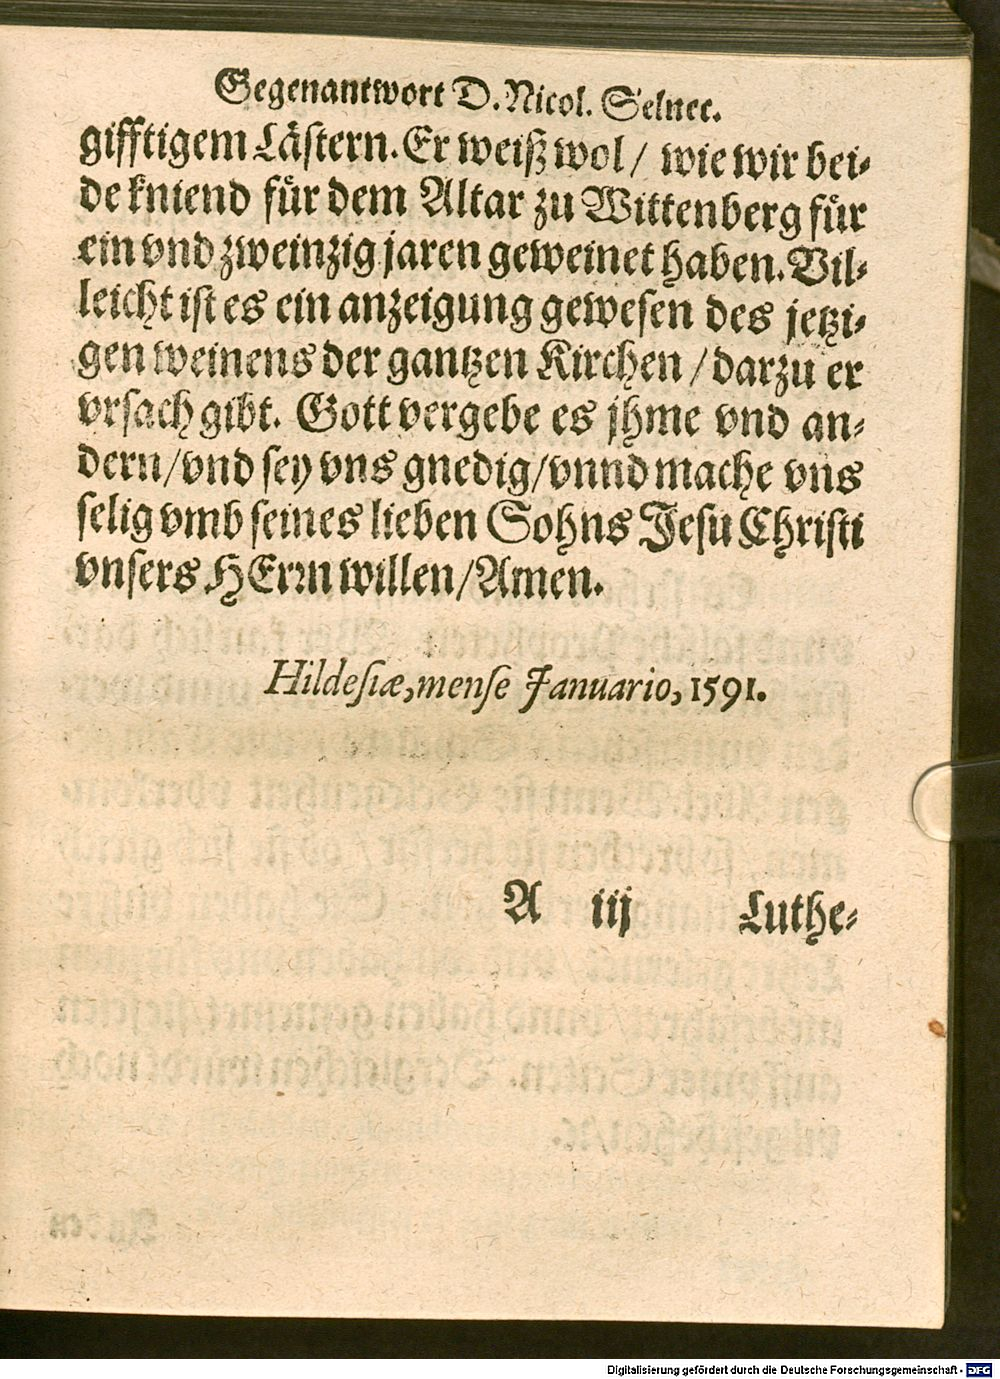 Gegenantwort D. Nicol. Selnec.
gifftigem Lästern. Er weiß wol/ wie wir bei-
de kniend für dem Altar zu Wittenberg für
ein vnd zweinzig jaren geweinet haben. Vil-
leicht ist es ein anzeigung gewesen des jetzi-
gen weinens der gantzen Kirchen/ darzu er
vrsach gibt. Gott vergebe es jhme vnd an-
dern/ vnd sey vns gnedig/ vnnd mache vns
selig vmb seines lieben Sohns Jesu Christi
vnsers HErrn willen/ Amen.
Hildesiæ, mense Januario, 1591.
A iij Luthe-
Digitalisierung gefördert durch die Deutsche Forschungsgemeinschaft - DFG